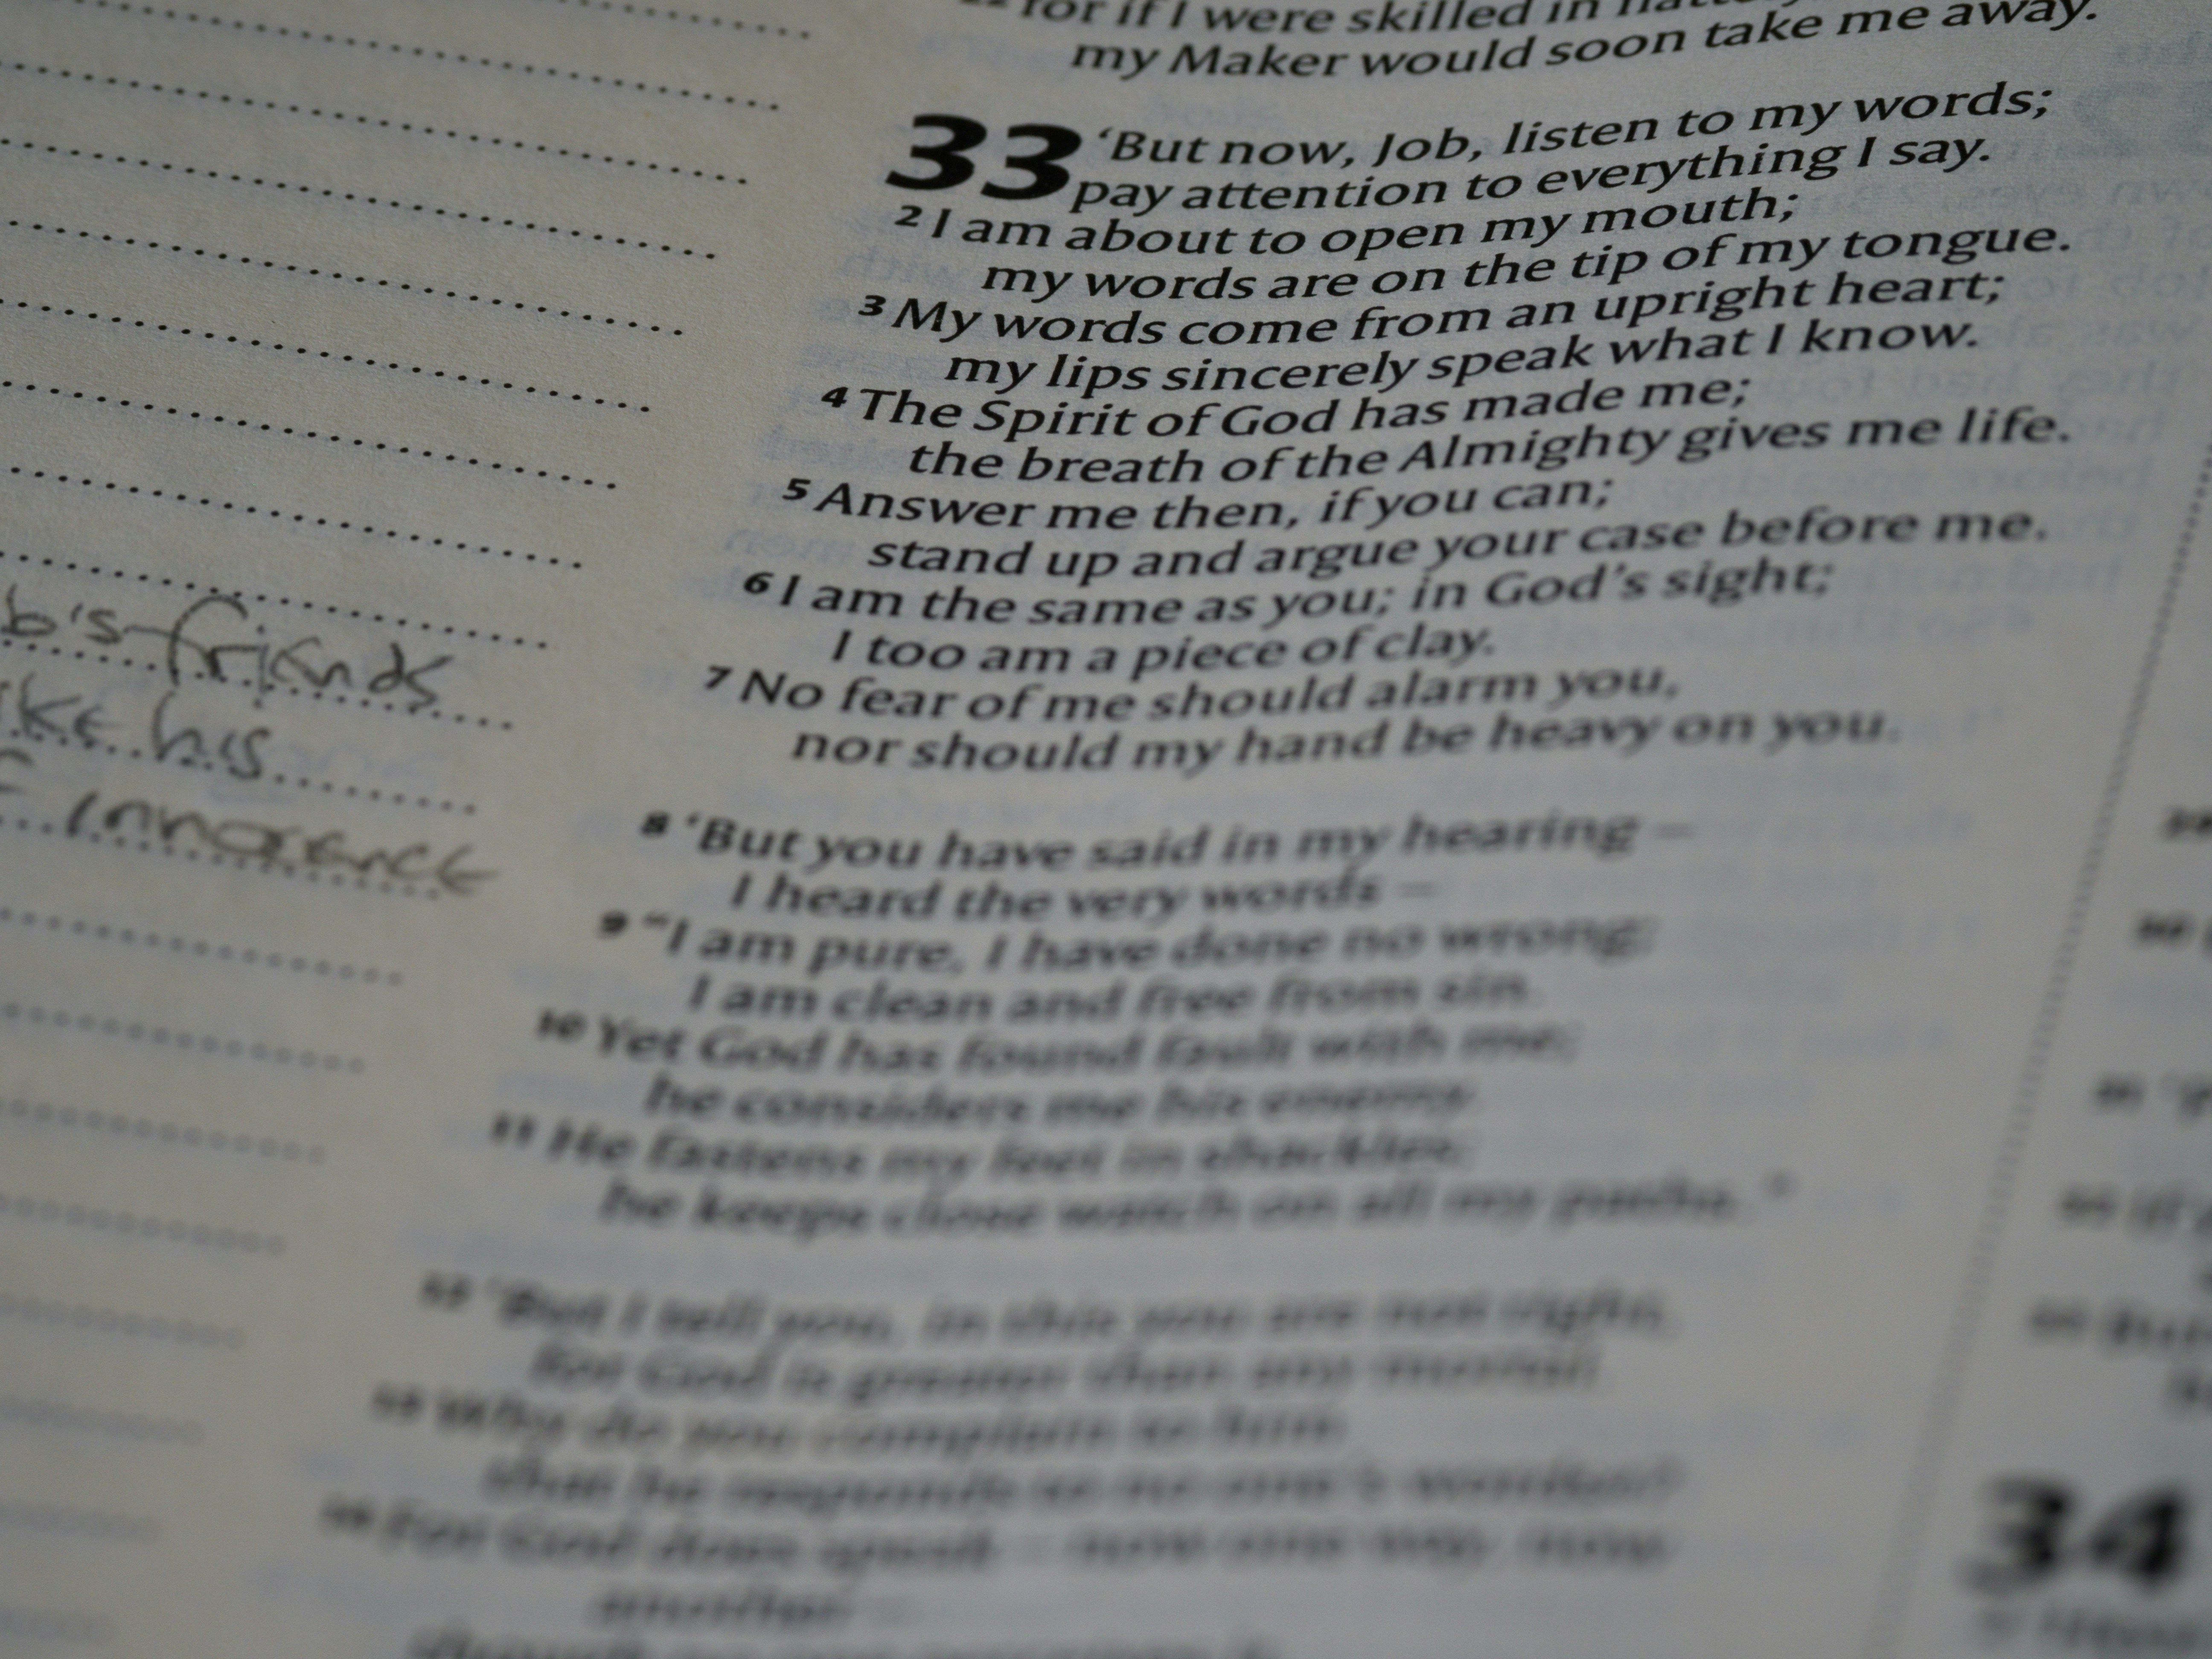 for if I were skilled in
my Maker would soon take me away.
33 ‘But now, Job, listen to my words;
pay attention to everything I say.
2 I am about to open my mouth;
my words are on the tip of my tongue.
3 My words come from an upright heart;
my lips sincerely speak what I know.
4 The Spirit of God has made me;
the breath of the Almighty gives me life.
5 Answer me then, if you can;
stand up and argue your case before me.
6 I am the same as you; in God’s sight;
I too am a piece of clay.
7 No fear of me should alarm you,
nor should my hand be heavy on you.
8 ‘But you have said in my hearing –
I heard the very words –
9 “I am pure, I have done no wrong;
I am clean and free from sin.
10 Yet God has found fault with me;
he considers me his enemy.
11 He fastens my feet in shackles;
he keeps close watch on all my paths.”
12 ‘But I tell you, in this you are not right,
for God is greater than any mortal.
13 Why do you complain to him
that he responds to no one’s words?
14 For God does speak – now one way, now
another –
friends
his
innocence
34